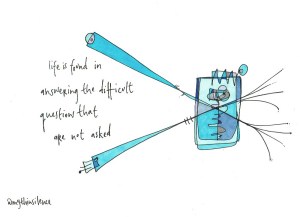 life is found in
answering the difficult
questions that
are not asked